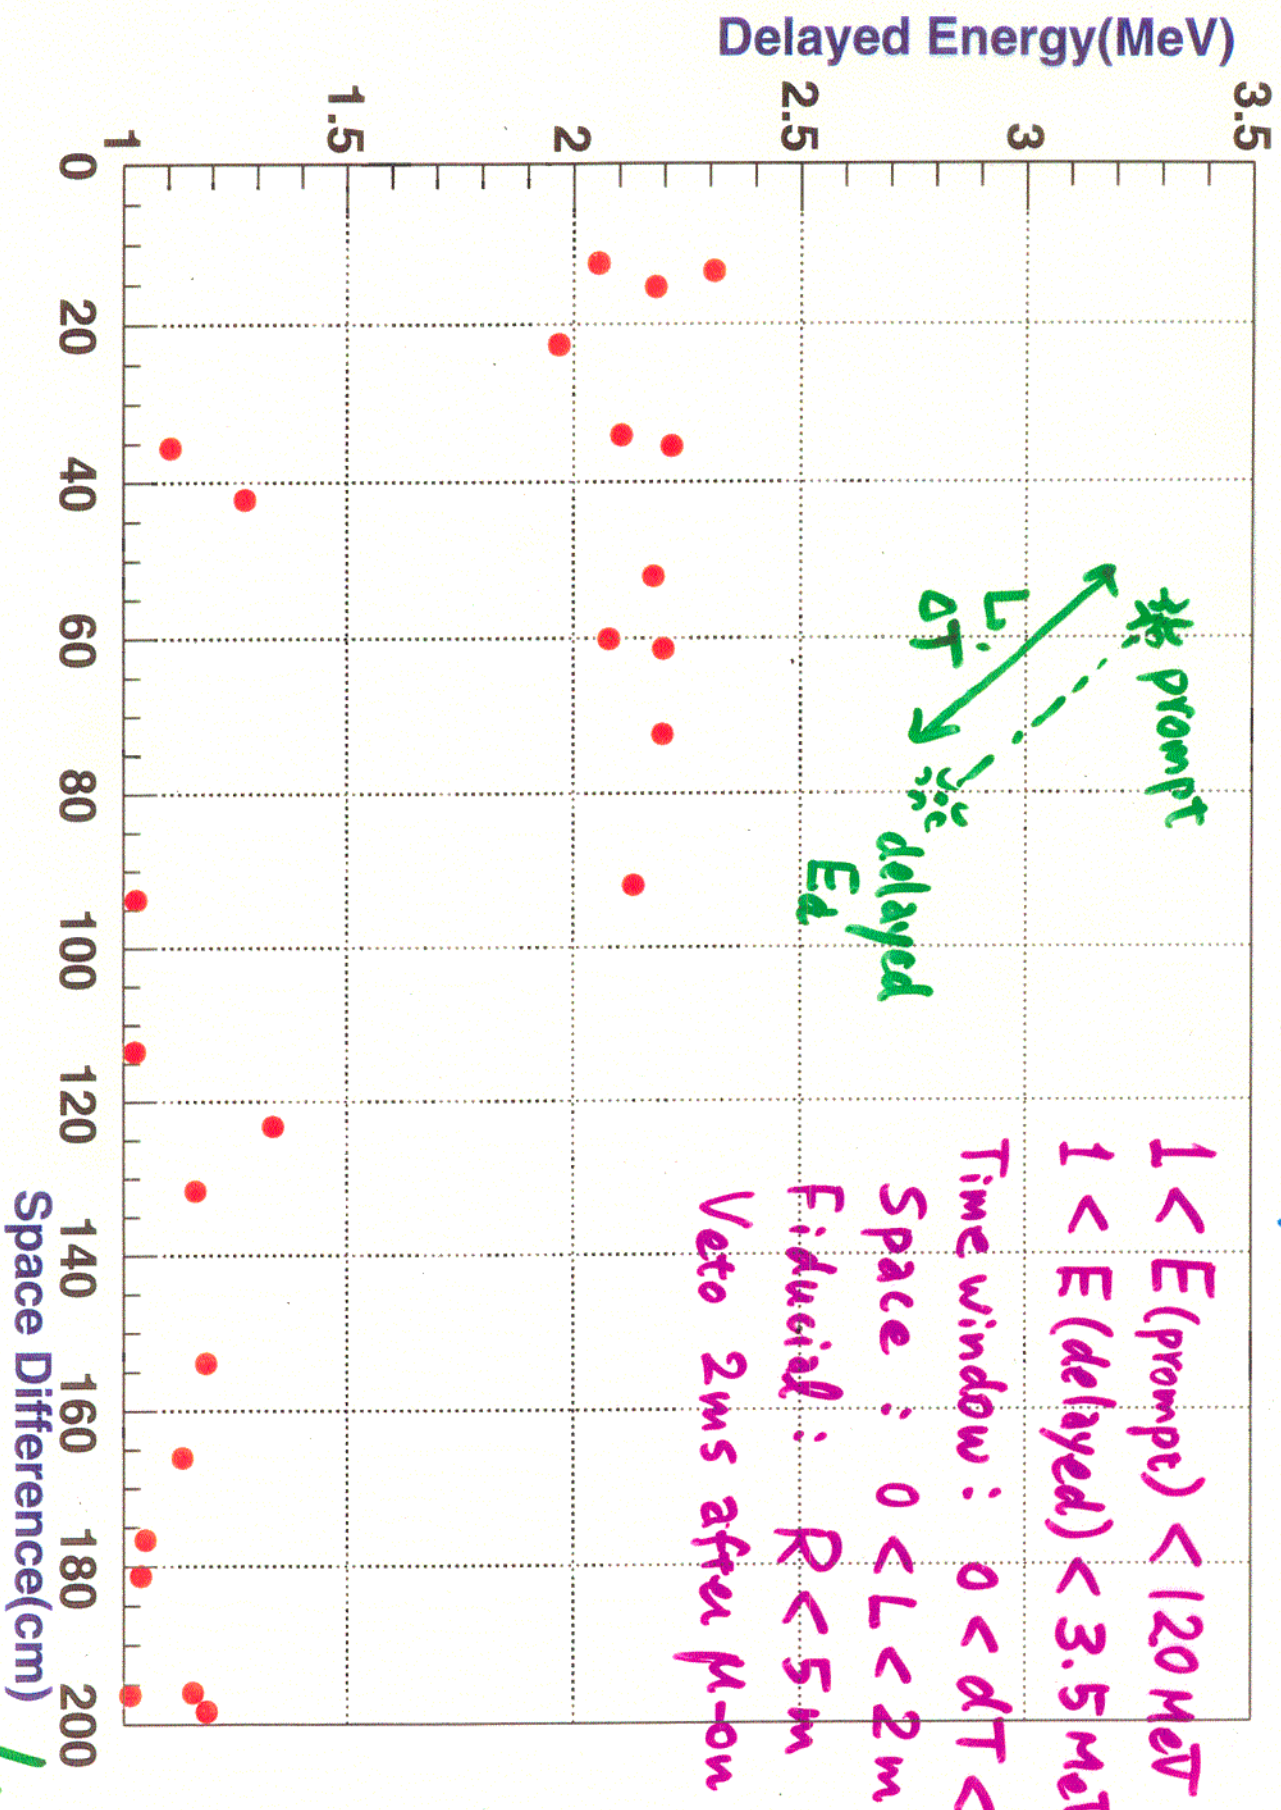 Delayed Energy(MeV)
3.5
3
2.5
2
1.5
1
0
20
40
60
80
100
120
140
160
180
200
Space Difference(cm)
prompt
L.
ΔT
delayed
Ed
1 < E (prompt) < 120 MeV
1 < E (delayed) < 3.5 MeV
Time window : 0 < dT <
Space : 0 < L < 2m
Fiducial : R < 5m
Veto 2ms after μ-on